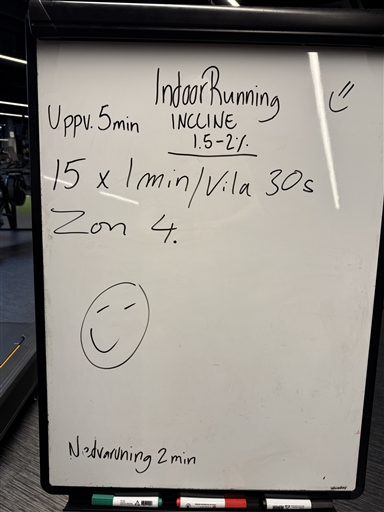 Indoor Running
Uppv. 5min
INCLINE
1.5-2%
15 x 1min/Vila 30s
Zon 4.
Nedvarvning 2 min